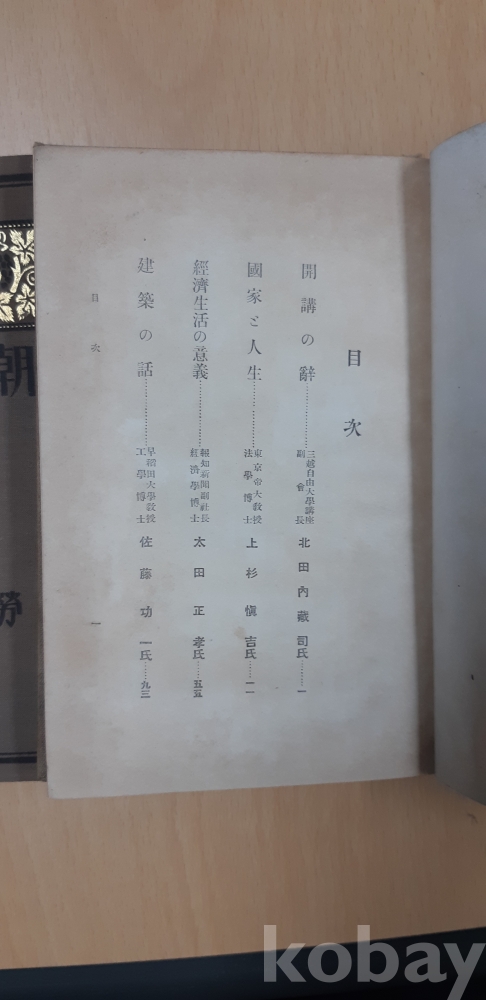 目次
開講の辭………三越自由大學講座副會長 北田內藏司氏………一
國家と人生………東京帝大敎授法學博士 上杉愼吉氏……一一
經濟生活の意義………報知新聞副社長經濟學博士 太田正孝氏……五五
建築の話………早稻田大學敎授工學博士 佐藤功一氏……九三
目次 一
朝
勞
kobay